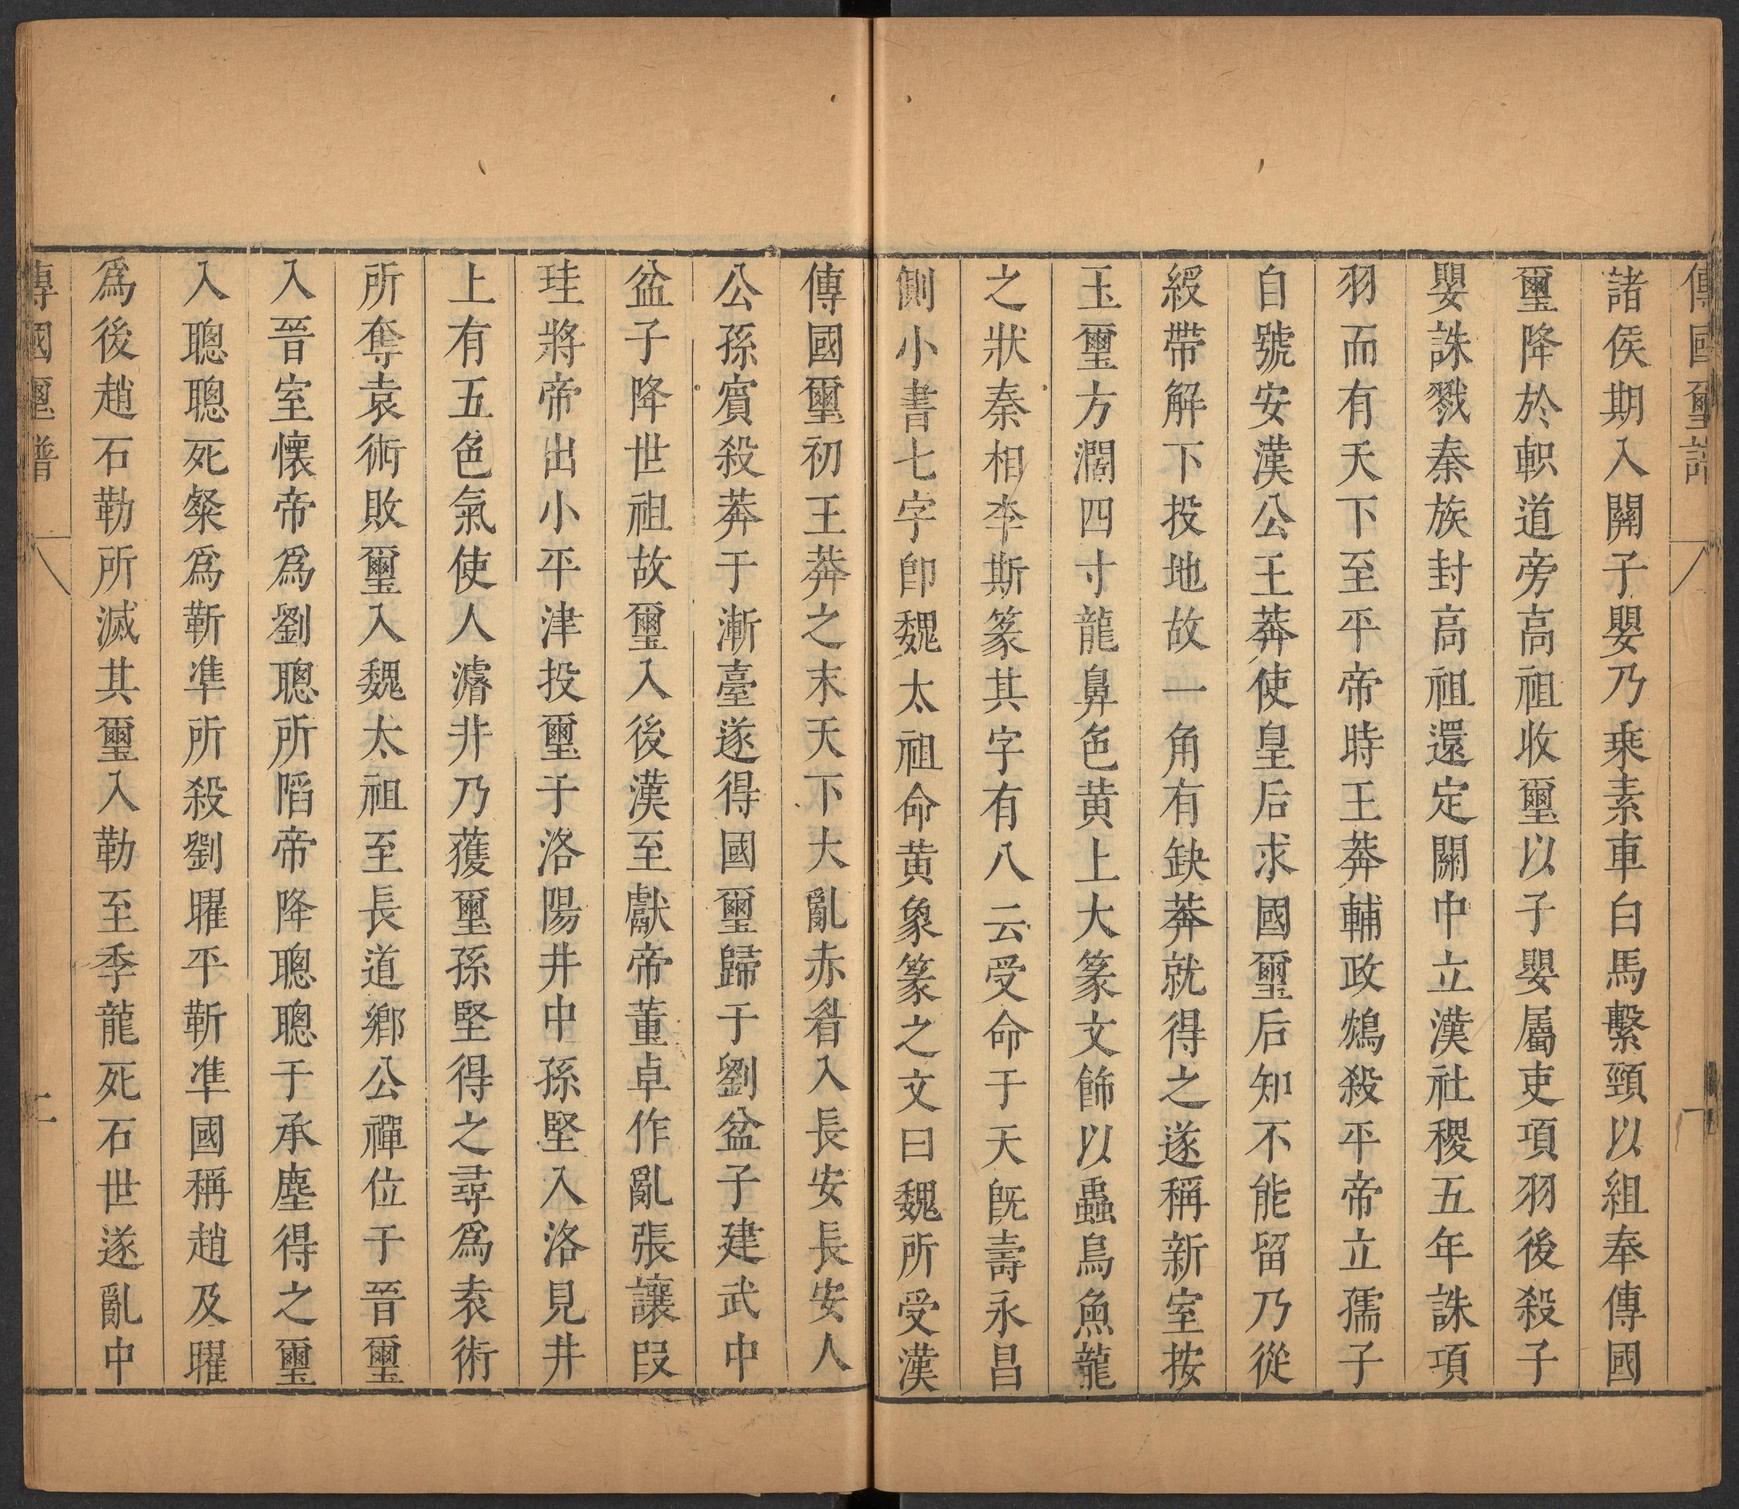 傳國璽譜
一
諸侯期入關子嬰乃乘素車白馬繫頸以組奉傳國
璽降於軹道旁高祖收璽以子嬰屬吏項羽後殺子
嬰誅戮秦族封高祖還定關中立漢社稷五年誅項
羽而有天下至平帝時王莽輔政鴆殺平帝立孺子
自號安漢公王莽使皇后求國璽后知不能留乃從
綬帶解下投地故一角有缺莽就得之遂稱新室按
玉璽方濶四寸龍鼻色黄上大篆文飾以蟲鳥魚龍
之狀秦相李斯篆其字有八云受命于天旣壽永昌
側小書七字卽魏太祖命黄象篆之文曰魏所受漢
傳國璽初王莽之末天下大亂赤眉入長安長安人
公孫賓殺莽于漸臺遂得國璽歸于劉盆子建武中
盆子降世祖故璽入後漢至獻帝董卓作亂張讓段
珪將帝出小平津投璽于洛陽井中孫堅入洛見井
上有五色氣使人濬井乃獲璽孫堅得之尋爲袁術
所奪袁術敗璽入魏太祖至長道鄉公禪位于晉璽
入晉室懷帝爲劉聰所䧟帝降聰聰于承塵得之璽
入聰聰死粲爲靳準所殺劉曜平靳準國稱趙及曜
爲後趙石勒所滅其璽入勒至季龍死石世遂亂中
傳國璽譜
二